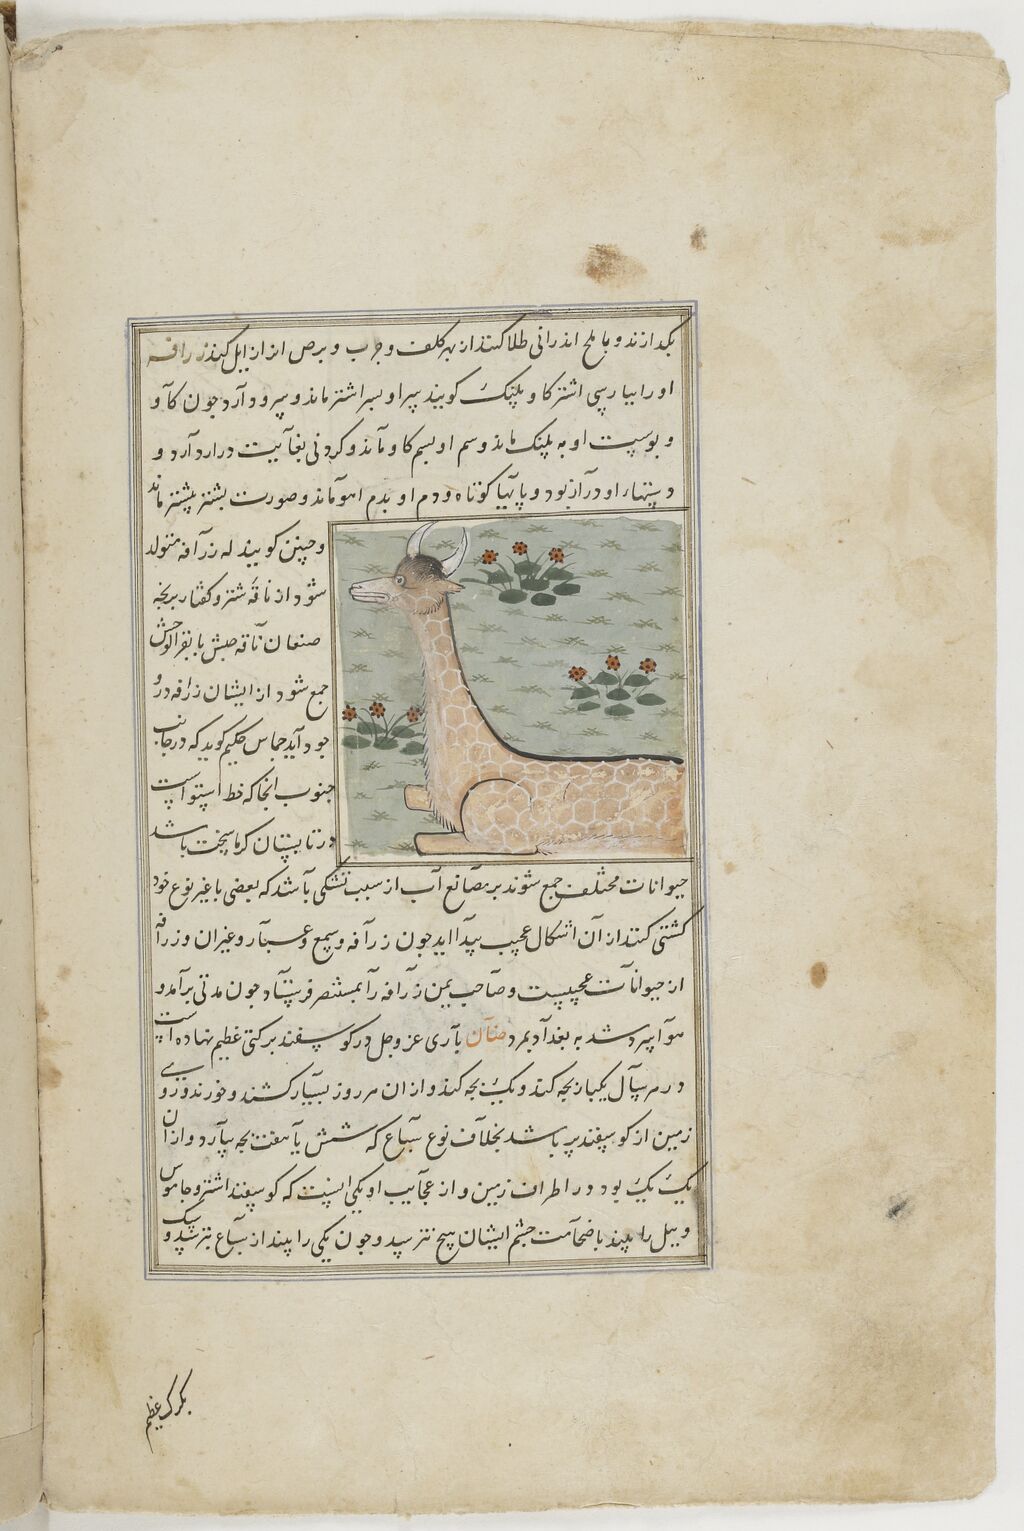 بگدازند و با ملح اندرانی طلا کنند از بهر کلف و جرب و برص از ازایل کند زرافه
او را بپارسی اشتر کاو پلنک کویند سر او بسر اشتر ماند و سرو دارد چون کاو
و پوست او به پلنک ماند و سم او بسم کاو ماند و کردنی بغایت دراز دارد و
دستهاء او دراز بود و پایها کوتاه و دم او بدم اهو ماند و صورت بشتر بیشتر ماند
و چنین کویند که زرافه متولد
شود از ناقه شتر و کفتار بریخه
صنعان ناقه حبش با بقر الوحش
جمع شود از ایشان زرافه در و
جود آید طیماس حکیم کوید که در جانب
جنوب انجا که خط استوا است
در تابستان کرما سخت باشد
حیوانات مختلف جمع شوند بر مصانع آب از سبب تشنکی باشد که بعضی با غیر نوع خود
کشتی کنند از آن اشکال عجیب پیدا اید چون زرافه و سمع و عسبار و غیران و زرافه
از حیوانات عجیبست و صاحب یمن زرافه را بمستنصر فرستاد چون مدتی برآمد و
هوا سرد شد به بغداد بمرد ضان باری عز و جل در کوسفند برکتی عظیم نهاده است
در هر سال یکبار بچه کند و یک بچه کند و از ان هر روز بسیار کشند و خورند و روی
زمین از کوسفند پر باشد بخلاف نوع سباع که شش یا هفت بچه بیارد و از ان
یک یک بود در اطراف زمین و از عجایب او یکی اینست که کوسفند اشتر و جاموس
و پیل را بیند با ضخامت جثم ایشان هیچ نترسد و چون یکی را بیند از سباع بترسد و
بکرک عظیم